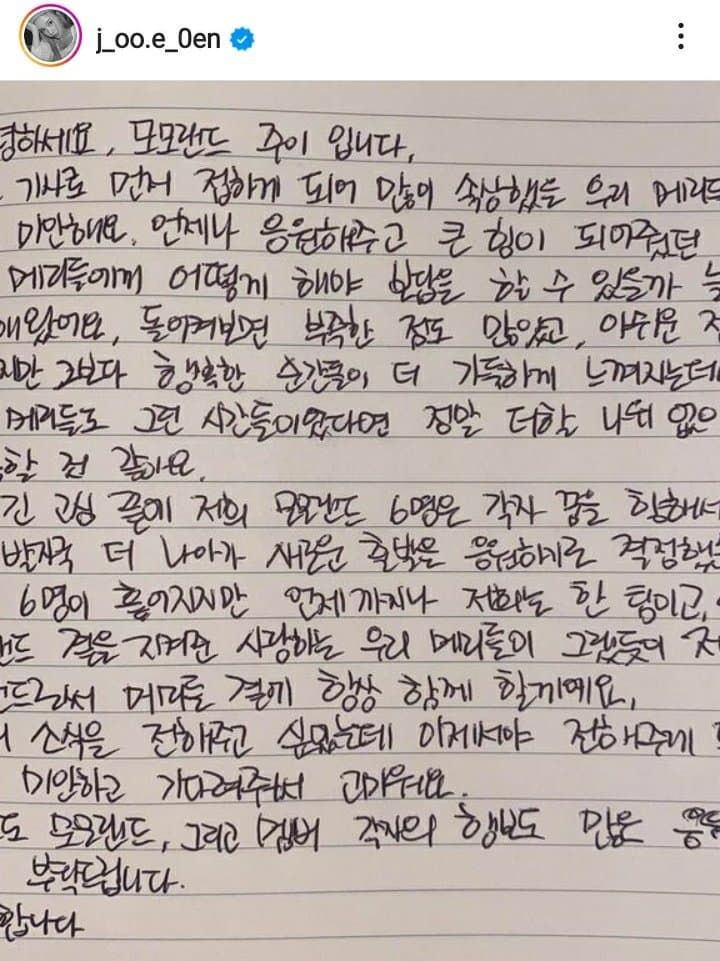 j_oo.e_0en
녕하세요, 모모랜드 주이 입니다.
기사로 먼저 접하게 되어 많이 속상했을 우리 메리
미안해요. 언제나 응원해주고 큰 힘이 되어줬던
메리들에게 어떻게 해야 보답을 할 수 있을까
해왔어요, 돌이켜보면 부족한 점도 많았고, 아쉬운
지만 그보다 행복한 순간들이 더 가득하게 느껴지는데
메리들도 그런 시간들이었다면 정말 더할 나위 없으
할 것 같아요.
긴 고심 끝에 저희 모모랜드 6명은 각자 꿈을 향해서
발자국 더 나아가 새로운 출발을 응원하기로 결정했
6명이 흩어지지만 언제까지나 저희는 한 팀이고,
랜드 곁을 지켜준 사랑하는 우리 메리들이 그랬듯이 저
랜드로서 메리들 곁에 항상 함께 할거예요,
소식을 전해주고 싶었는데 이제서야 전해주게
미안하고 기다려줘서 고마워요.
도 모모랜드, 그리고 멤버 각자의 행보도 많은 응
부탁드립니다.
합니다